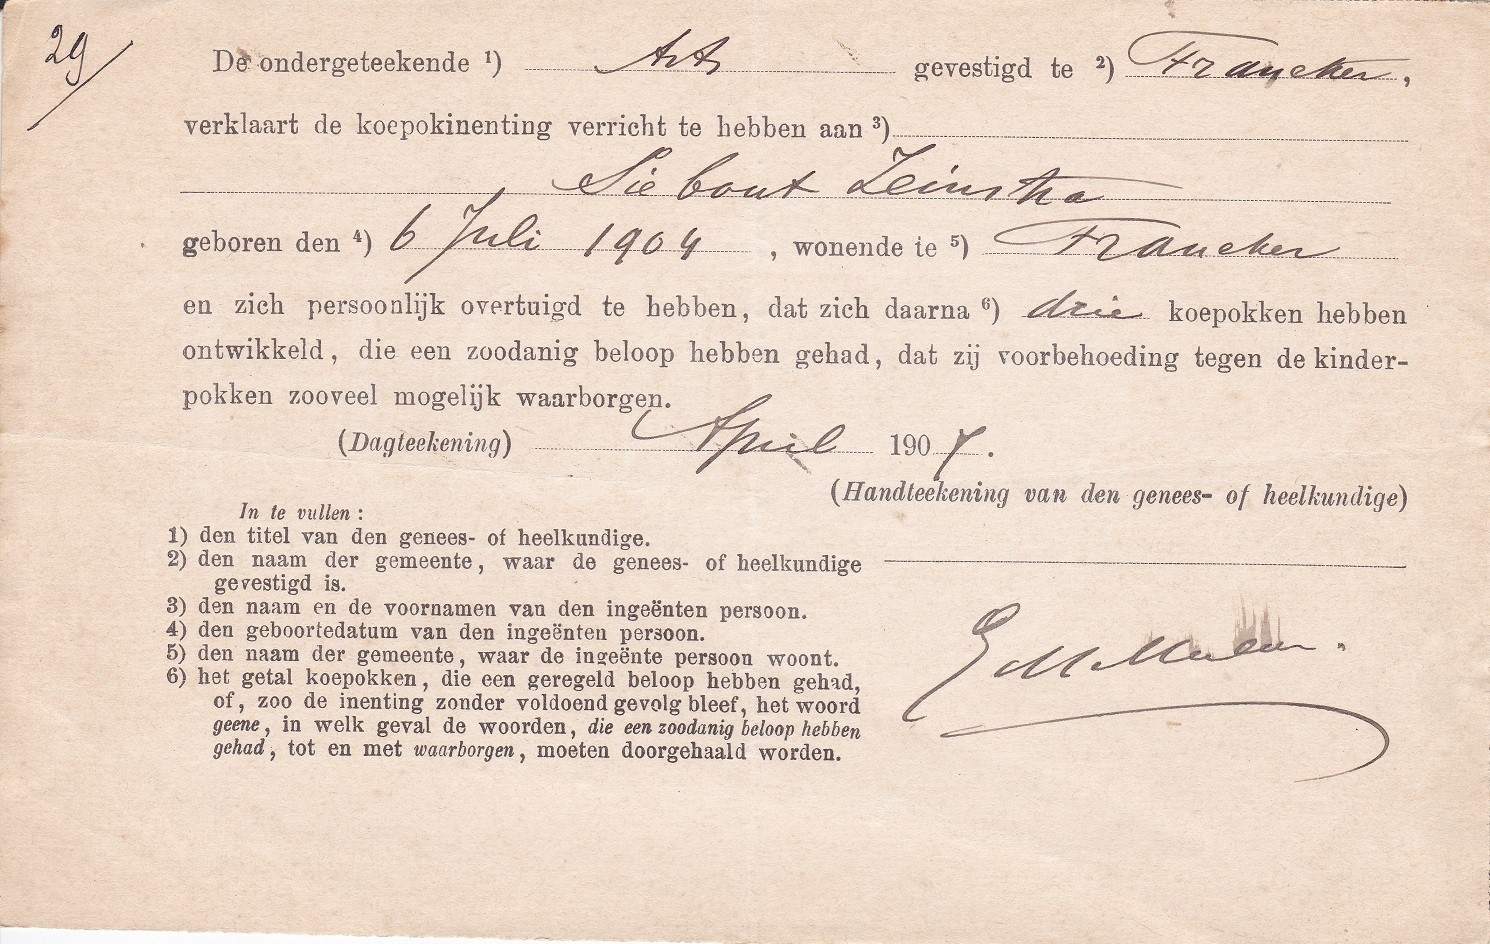 29
De ondergeteekende ¹) Arts gevestigd te ²) Franeker,
verklaart de koepokinenting verricht te hebben aan ³)
Siebout Zeinstra
geboren den ⁴) 6 Juli 1904, wonende te ⁵) Franeker
en zich persoonlijk overtuigd te hebben, dat zich daarna ⁶) drie koepokken hebben
ontwikkeld, die een zoodanig beloop hebben gehad, dat zij voorbehoeding tegen de kinder-
pokken zooveel mogelijk waarborgen.
(Dagteekening) April 1907.
(Handteekening van den genees- of heelkundige)
In te vullen:
1) den titel van den genees- of heelkundige.
2) den naam der gemeente, waar de genees- of heelkundige
gevestigd is.
3) den naam en de voornamen van den ingeënten persoon.
4) den geboortedatum van den ingeënten persoon.
5) den naam der gemeente, waar de ingeënte persoon woont.
6) het getal koepokken, die een geregeld beloop hebben gehad,
of, zoo de inenting zonder voldoend gevolg bleef, het woord
geene, in welk geval de woorden, die een zoodanig beloop hebben
gehad, tot en met waarborgen, moeten doorgehaald worden.